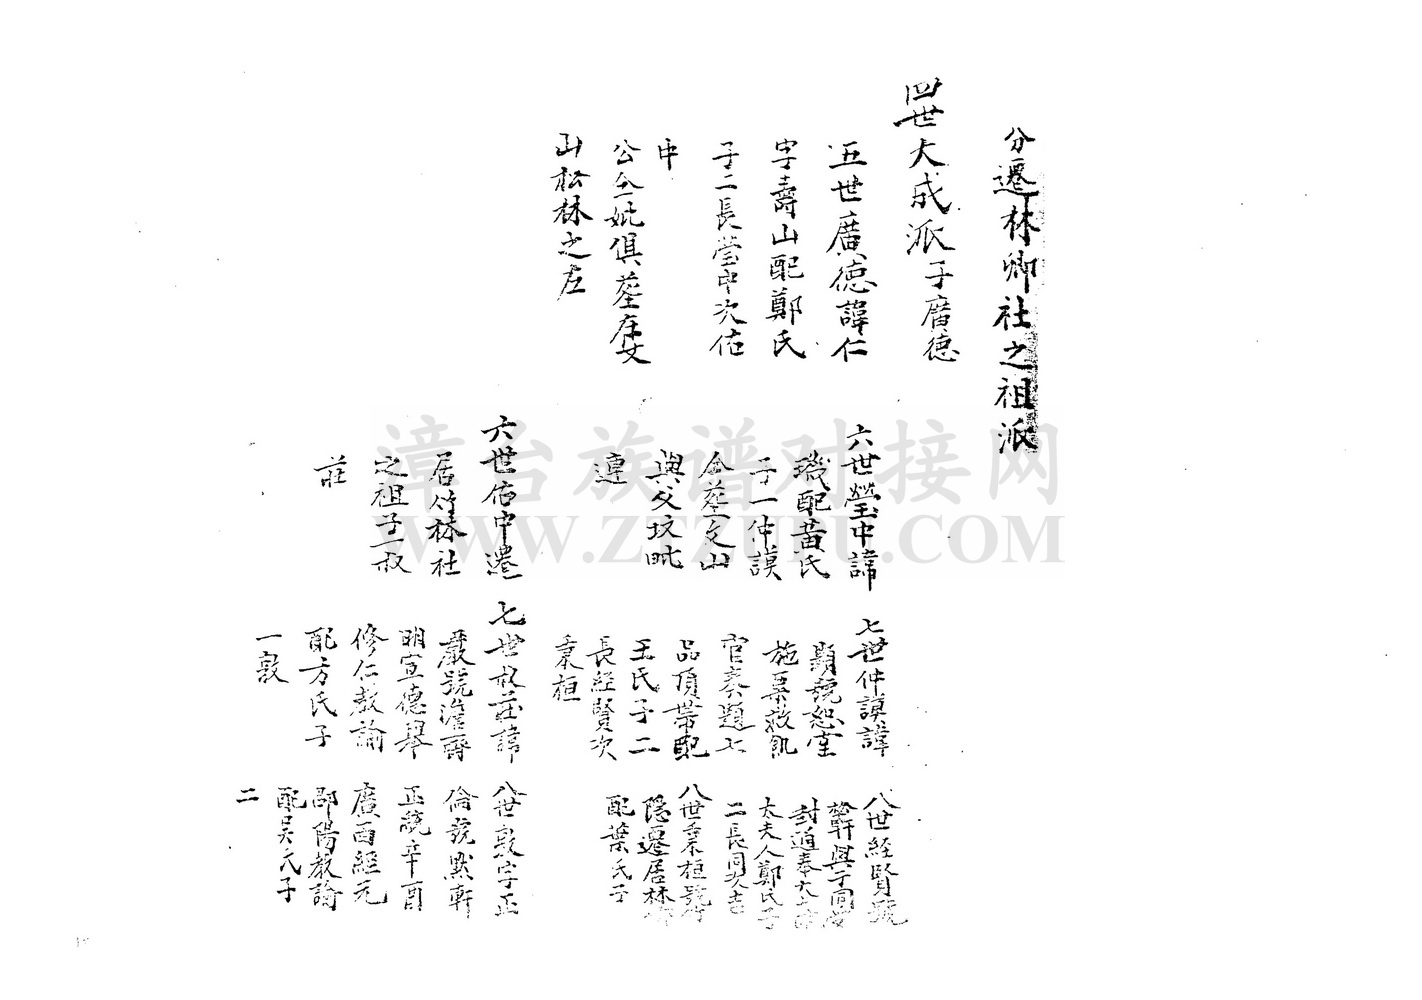 分遷林卿社之祖派
四世大成派子廣德
五世廣德諱仁
字壽山配鄭氏
子二長瑩中次佑
中
公仝妣俱葬庄
山松林之左
六世瑩中諱
璣配黃氏
子一仲謨
仝葬文山
與父坟毗
連
六世佑中遷
居竹林社
之祖子一叔
莊
七世仲謨諱
顯號恕堂
施粟救飢
官奏題七
品頂帶配
王氏子二
長經賢次
秉桓
七世叔莊諱
嚴號澹齋
明宣德舉
修仁教諭
配方氏子
一敦
八世經賢號
軒與子同
封道奉大
太夫人鄭氏子
二長同次吉
八世秉桓號竹
隱遷居林
配葉氏子
八世敦字正
倫號默軒
正統辛酉
廣西經元
邵陽教諭
配吳氏子
二
漳台族谱对接网
WWW.ZTZUPU.COM